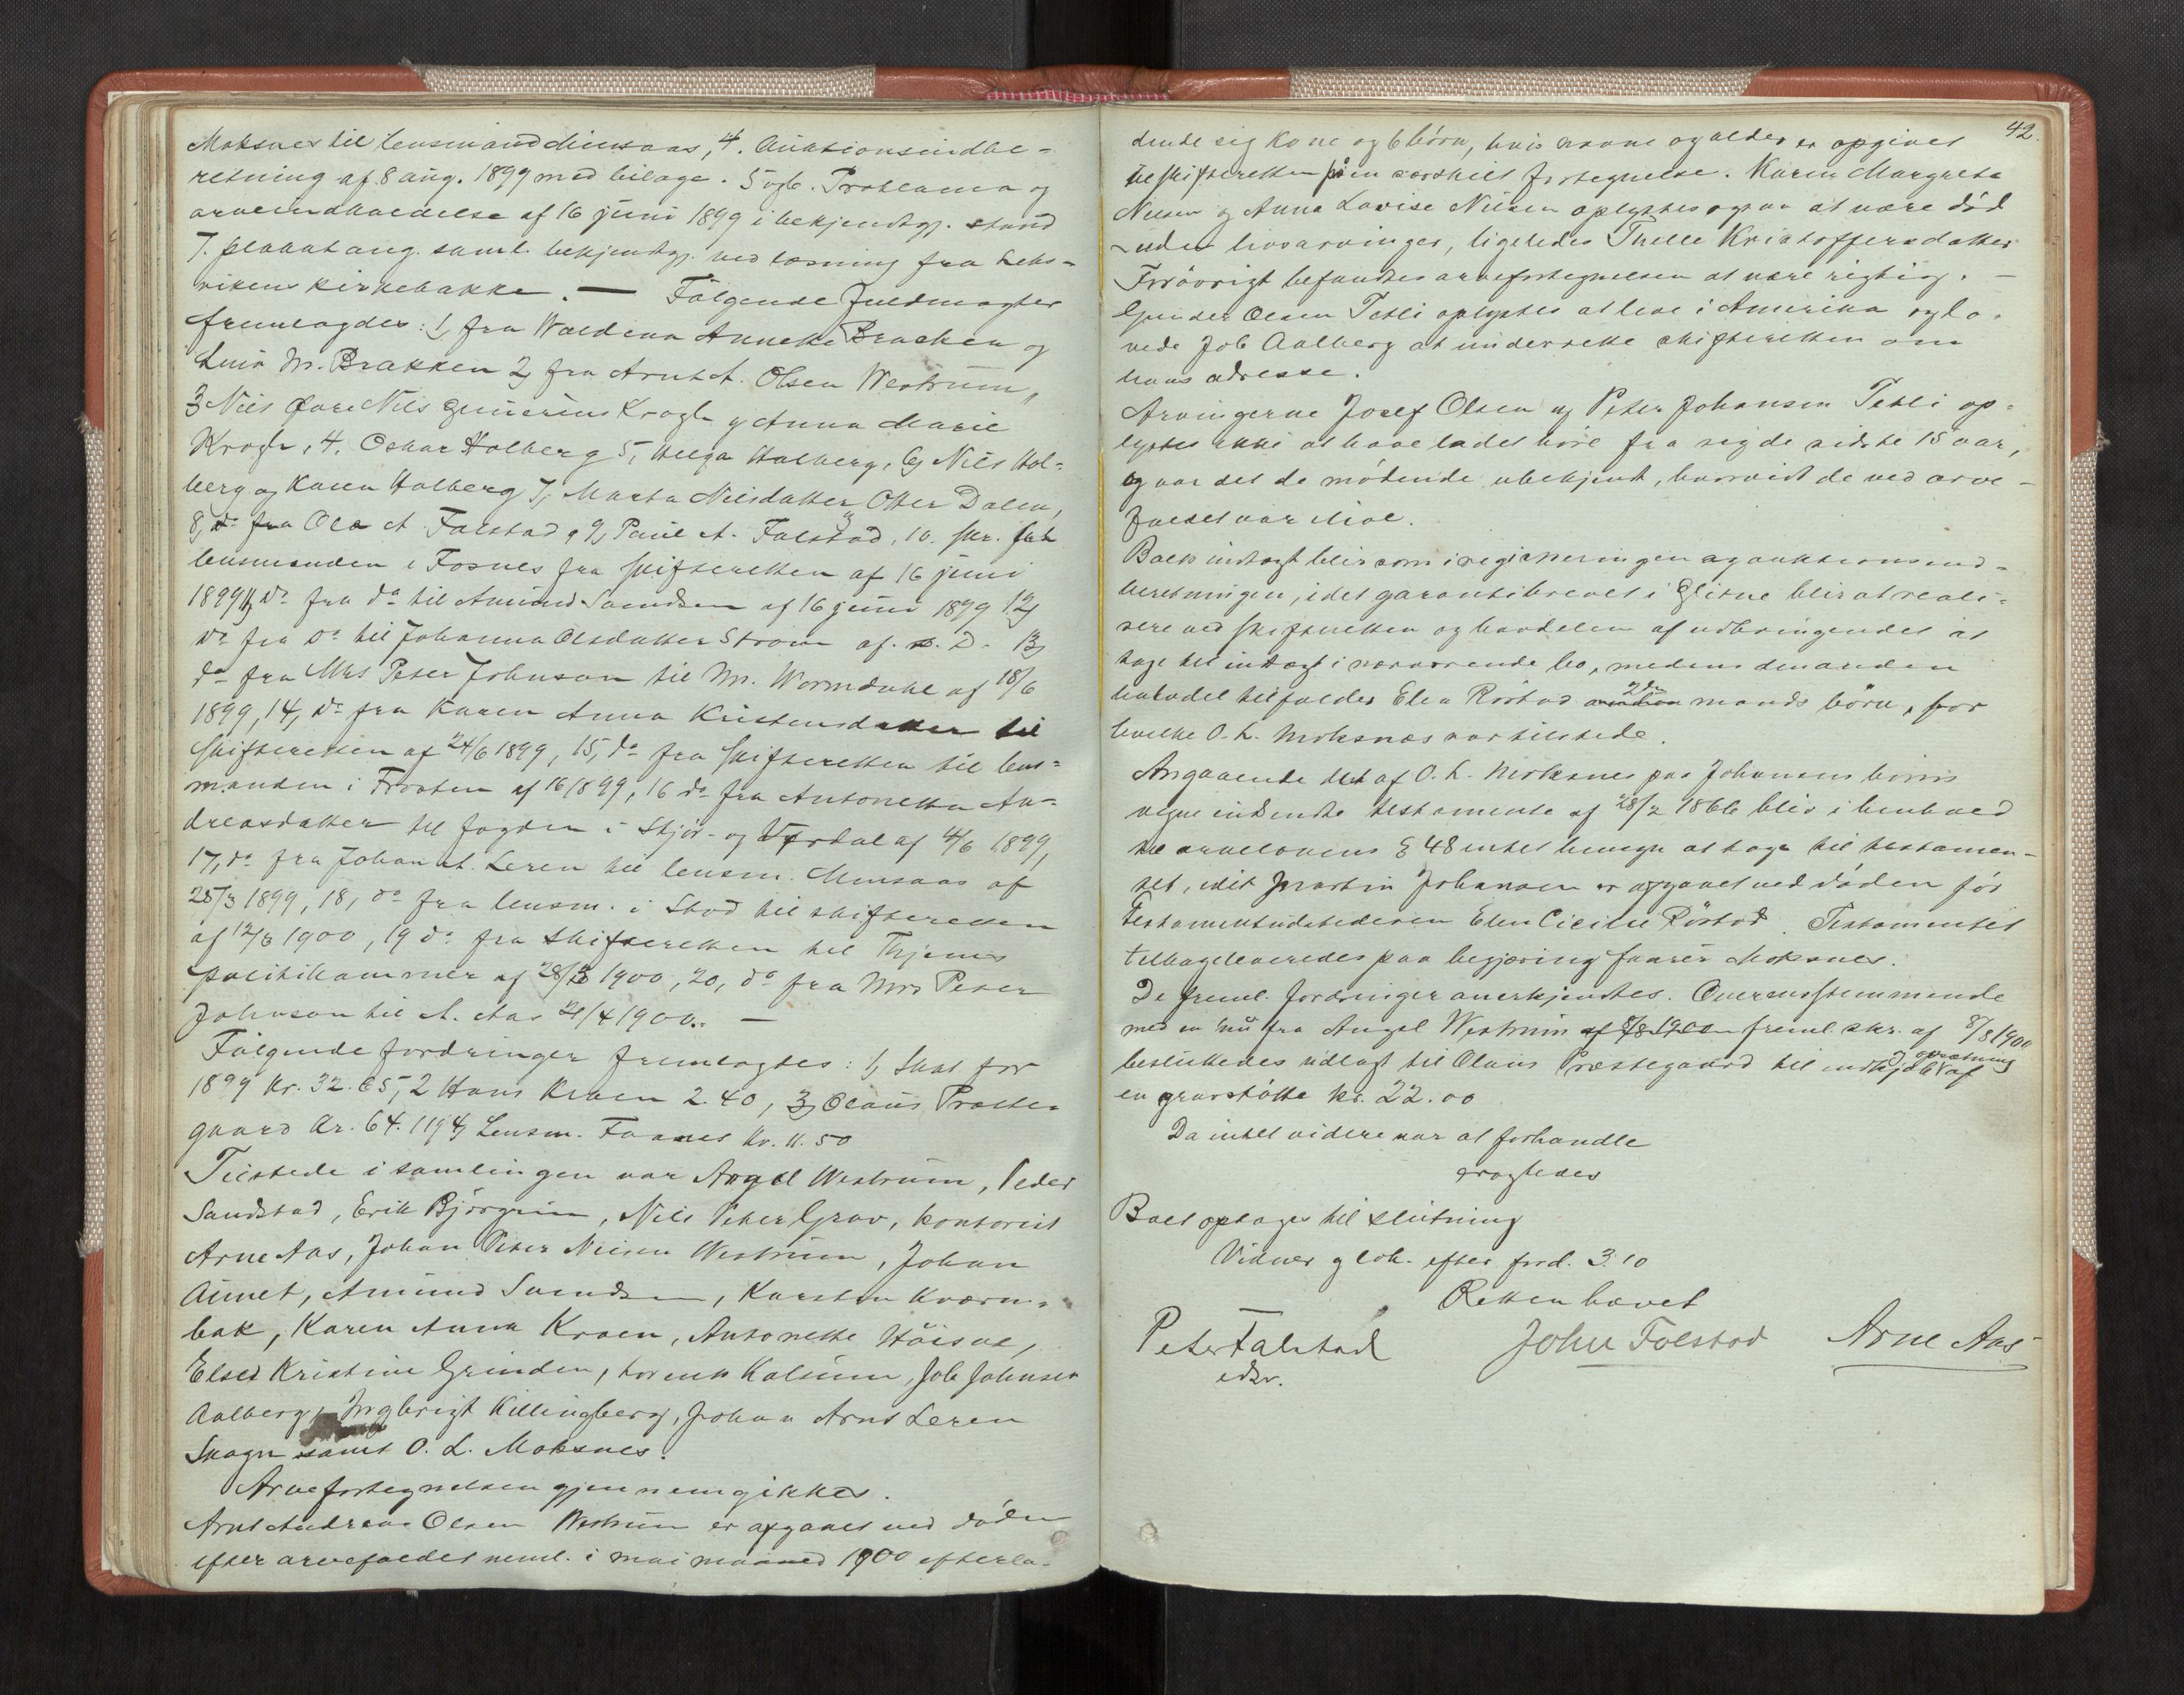 Moksnes til lensmand Minsaas, 4. Auktionsindbe-
retning af 8 aug. 1899 med bilage. 5 og 6. Proklama og
arveindkaldelse af 16 juni 1899 i bekjendtgj. stand
7. plakat ang. saml. bekjendtgj. ved læsning fra Leks-
vikens kirkebakke. — Følgende fuldmagter
fremlagdes: 1, fra Waldena Anneke Bracken og
Luis M. Brakken 2, fra Arnt A. Olsen Westrum,
3 Nils Gunerius Krogh og Anna Marie
Krogh, 4. Oskar Holberg 5, Helga Halberg, 6, Nils Hol-
berg og Karen Halberg 7, Marta Nilsdatter Otter Dalen,
8, do fra Ole A. Falstad og 9, Paul A. Falstad, 10. skr. fra
lensmanden i Fosnes fra skifteretten af 16 juni
1899 11, do fra do til Amund Svendsen af 16 juni 1899 12,
do fra do til Johanna Olsdatter Strøm af s. D. 13,
do fra Mrs Peter Johnson til M. Wormdahl af 18/6
1899, 14, do fra Karen Anna Kristensdatter til
skifteretten af 24/6 1899, 15, do fra skifteretten til lens-
manden i Frosten af 16/ 1899, 16 do fra Antonetta An-
dreasdatter til fogden i Stjør- og Værdal af 4/6 1899,
17, do fra Johan A. Leren til lensm. Minsaas af
25/3 1899, 18, do fra lensm. i Stod til skifteretten
af 12/3 1900, 19 do fra skifteretten til Thjems
politikammer af 28/3 1900, 20, do fra Mrs Peter
Johnson til A. Aas 21/4 1900. —
Følgende fordringer fremlagdes: 1, Skat for
1899 kr. 32.65, 2 Hans Kraen 2.40, 3, Olaus Præste-
gaard kr. 64.11 4, Lensm. Fosnes kr. 11.50
Tilstede i samlingen var Angel Westrum, Peder
Sandstad, Erik Bjørgum, Nils Peter Grav, kontorist
Arne Aas, Johan Peter Nilsen Westrum, Johan
Aunet, Amund Svendsen, Karsten Kværn-
bak, Karen Anna Kraen, Antonette Høisve,
Elsed Kristine Grinden, Lorents Kalsum, Job Johnsen
Aalberg, Ingbrigt Killingberg, Johan Arnt Leren
Skogn samt O. L. Moksnes.
Arvefortegnelsen gjennemgikkes.
Arnt Andreas Olsen Westrum er afgaaet ved døden
efter arvefaldet neml. i mai maaned 1900 efterla-
42.
dende sig kone og 6 børn, hvis navne og alder er opgivet
til skifteretten på en særskilt fortegnelse. Karen Margreta
Nilsen og Anna Lovise Nilsen oplystes ogsaa at være død
uden livsarvinger, ligeledes Thelle Kristoffersdatter
Forøvrigt befandtes arvefortegnelsen at være rigtig. —
Gunder Olsen Tetli oplystes at leve i Amerika og lo-
vede Job Aalberg at underrette skifteretten om
hans adresse.
Arvingerne Josef Olsen og Peter Johansen Tetli op-
lystes ikke at have ladet høre fra sig de sidste 15 aar,
og var det de mødende ubekjent, hvorvidt de ved arve-
faldet var ilive.
Boets indtægt blir som i registreringen og auktionsind-
beretningen, idet garantibrevet i Glitne blir at reali-
sere ved skifteretten og halvdelen af udbringendet at
tage til indtægt i nærværende bo, medens den anden
halvdel tilfalder Elen Røstad 2den mands børn, for
hvilke O. L. Moksnes var tilstede.
Angaaende det af O. L. Moksnes paa Johansens børns
vegne indsendte testamente af 28/2 1866 blir i henhold
til arvelovens § 48 intet hensyn at tage til testamen-
tet, idet Martin Johansen er afgaaet ved døden før
testamentudstederen Elen Cicilie Røstad. Testamentet
tilbageleveredes paa begjæring forrir Moksnes.
De freml. fordringer anerkjendtes. Overensstemmende
med en nu fra Angel Westrum af 8/8 1900 freml. skr. af 8/8 1900
besluttedes udlagt til Olaus Præstegaard til indkjøb og opsætning af
en gravstøtte kr. 22.00
Da intet videre var at forhandle
eragtedes
Boet optages til slutning
Vidner g loh. efter ford. 3.10
Retten hævet
Peter Falstad John Folstad Arne Aas
edsv.